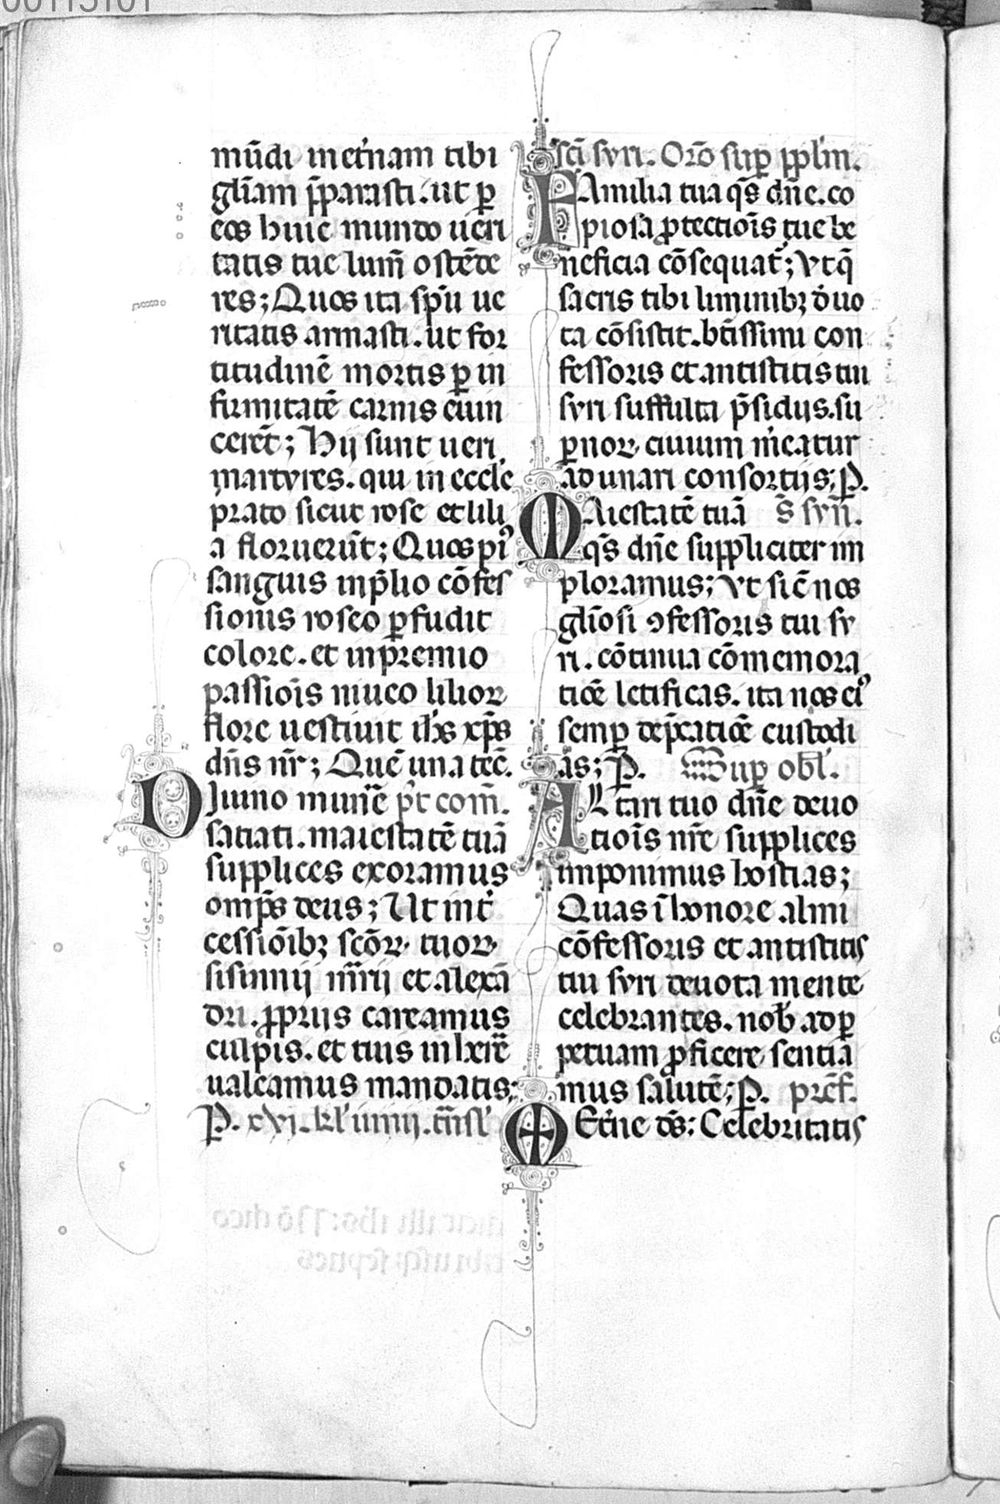 00113101
mūdi in et̄nam tibi
gl̄iam p̄parasti. ut ꝑ
eos huic mundo ueri
tatis tue lum̄ ostēde
res; Quos ita sp̄u ue
ritatis armasti. ut for
titudinē mortis ꝑ in
firmitatē carnis euin
cerēt; Hij sunt ueri
martyres. qui in eccl̄e
prato sicut rose et lili
a floruerūt; Quos pi᷒
sanguis in p̄lio cōfes
sionis roseo ꝑfudit
colore. et in p̄remio
passiōis niueo lilioꝝ
flore uestiuit ih̄s xp̄s
dn̄s nr̄; Quē una tec̄.
DJuino mun̄e p̄t com̄.
satiati. maiestatē tuā
supplices exoramus
omp̄s deus; Ut int̄
cessiōibꝫ scōꝝ tuoꝝ
sisinnij m̄rij et alexā
dri. ꝓprijs careamus
culpis. et tuis inher̄e
ualeamus mandatis;
P. xvi. kl̄ iānij. t̄nsl̄
sc̄i syri. Orō suꝑ ppl̄m.
FAmilia tua q̄s dn̄e. co
piosa ꝓtectiōis tue be
neficia cōsequat̄; Vt q̄
sacris tibi liminibꝫ d̄uo
ta cōsistit. btīssimi con
fessoris et antistitis tui
syri suffulta p̄sidijs. su
ꝑnoꝝ ciuium m̄eatur
adunari consortijs; P.
MAiestatē tuā s̄ syrī.
q̄s dn̄e suppliciter im
ploramus; Vt sic̄ nos
gl̄iosi ꝯfessoris tui sy
ri. cōtinua cōmemora
tiōe letificas. ita nos ei᷒
semꝑ dep̄catiōe custodi
as; P. Suꝑ obl̄.
ALtari tuo dn̄e deuo
tiōis nr̄e supplices
imponimus hostias;
Quas ī honore almi
cōfessoris et antistitis
tui syri deuota mente
celebrantes. nob̄ ad ꝑ
petuam ꝓficere sentia
mus salutē; P. pref̄.
Et̄ne ds̄: Celebritatis